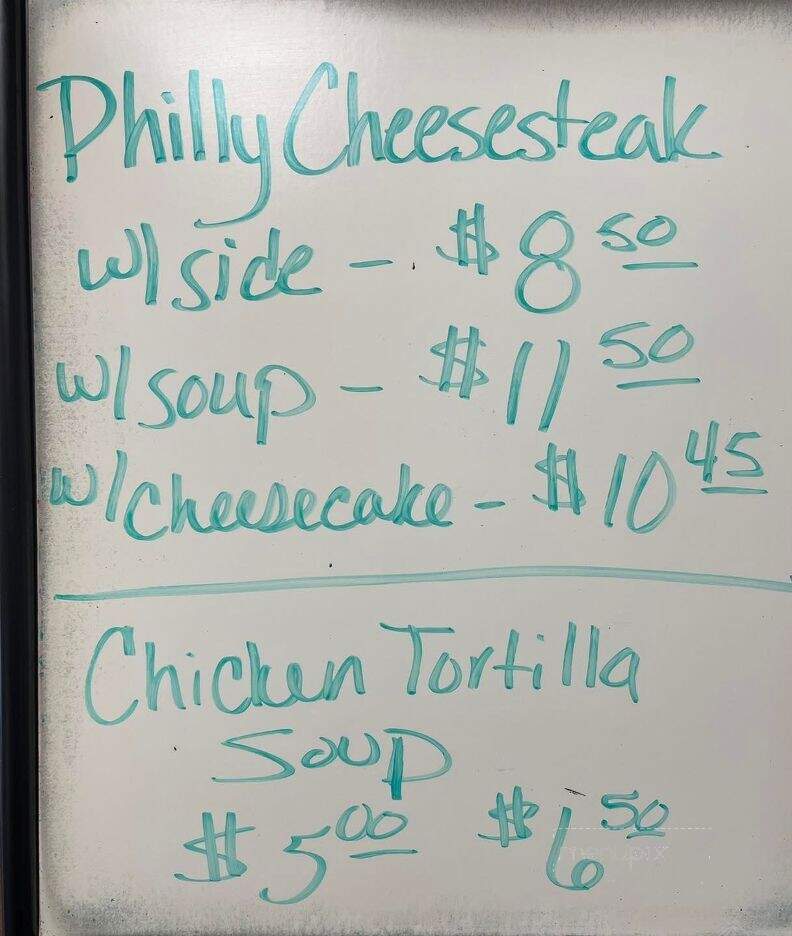 Philly Cheesesteak
w/ side - $8 50
w/ soup - $11 50
w/ cheesecake - $10 45
Chicken Tortilla
Soup
$5 00 $6 50
menupix